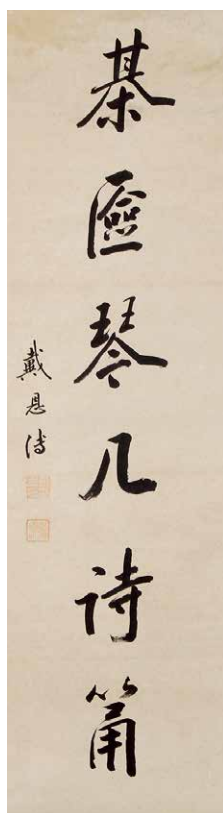 棊匳琴几詩筩
戴恩溥